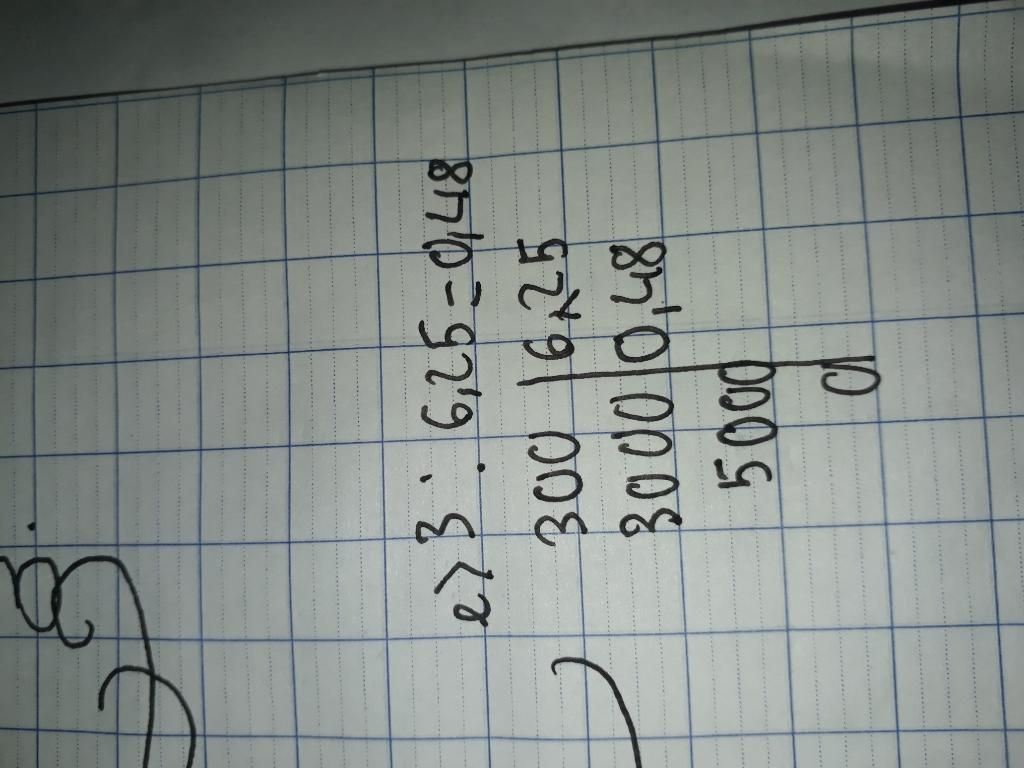 e) 3 : 6,25 = 0,48
300 6,25
3000 0,48
5000
0